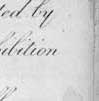 ted by
ibition